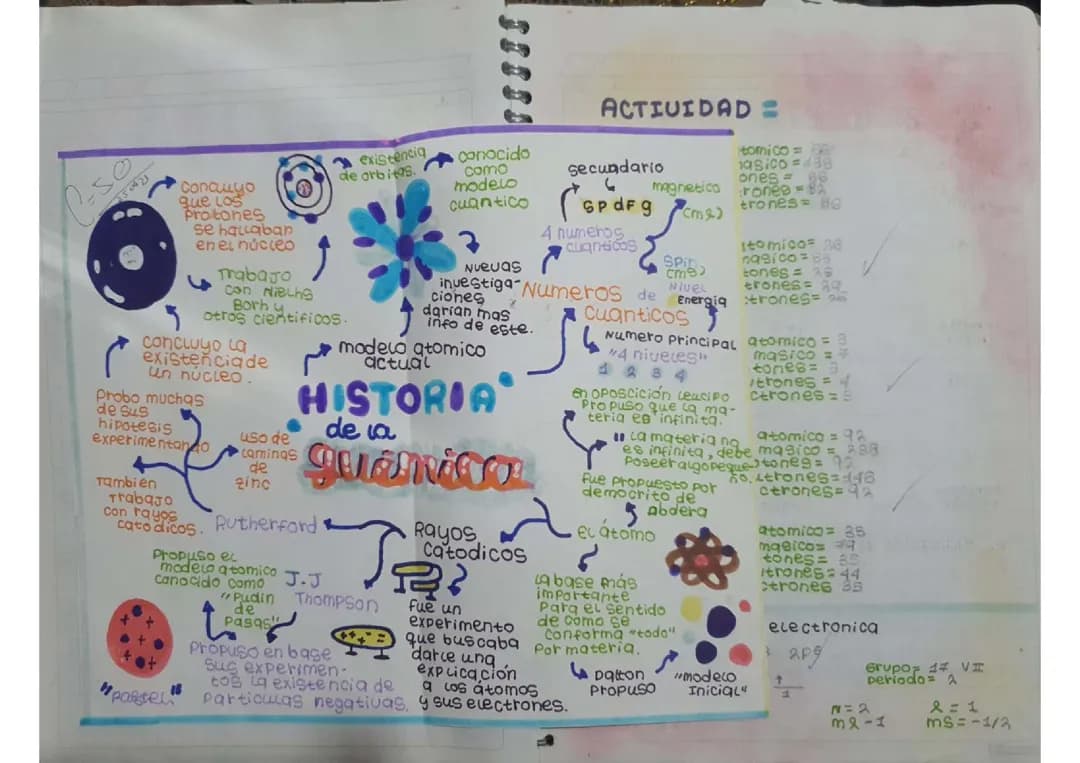 ACTIVIDAD =
HISTORIA
de la
química
concluyo
que los
protones
se hallaban
en el núcleo
existencia
de orbitas.
conocido
como
modelo
cuantico
Trabajo
con Nielhs
Borh y
otros cientificos.
concluyo la
existencia de
un núcleo.
Probo muchas
de sus
hipotesis
experimentando
uso de
laminas
de
zinc
También
Trabajo
con rayos
catodicos.
Rutherford
modelo atomico
actual
Nuevas
investiga-
ciones
darian mas
info de este.
Numeros de
cuanticos
4 numeros
cuanticos
secundario
S P d F g
magnetico
(m
Spin
(ms)
Nivel
Energia
Numero principal
"4 niveles"
1 2 3 4
en oposcición Leucipo
Propuso que la ma-
teria es infinita.
"La materia no
es infinita, debe
Poseer algo peque
ño.
Fue propuesto por
democrito de
abdera
el átomo
la base más
importante
Para el sentido
de como se
conforma "todo"
Por materia.
Dalton
Propuso
"modelo
Inicial"
Rayos
catodicos
Fue un
experimento
que buscaba
darle una
explicación
a los átomos
y sus electrones.
J.J
Thompson
Propuso el
modelo atomico
canocido como
"Pudin
de
Pasas"
Propuso en base
sus experimen-
tos la existencia de
particulas negativas.
"pastel"
tomico =
ones =
rones =
trones =
tomico =
tones =
trones =
trones =
atomico = 3
masico = 7
tones = 3
trones = 4
ctrones = 3
atomico = 92
masico = 238
tones = 92
trones = 146
ctrones = 92
atomico = 35
masico = 79
tones = 35
trones = 44
ctrones 35
electronica
2P5
Grupo = 17 VII
Periodo = 2
n = 2
l = 1
ml -1
ms = -1/2